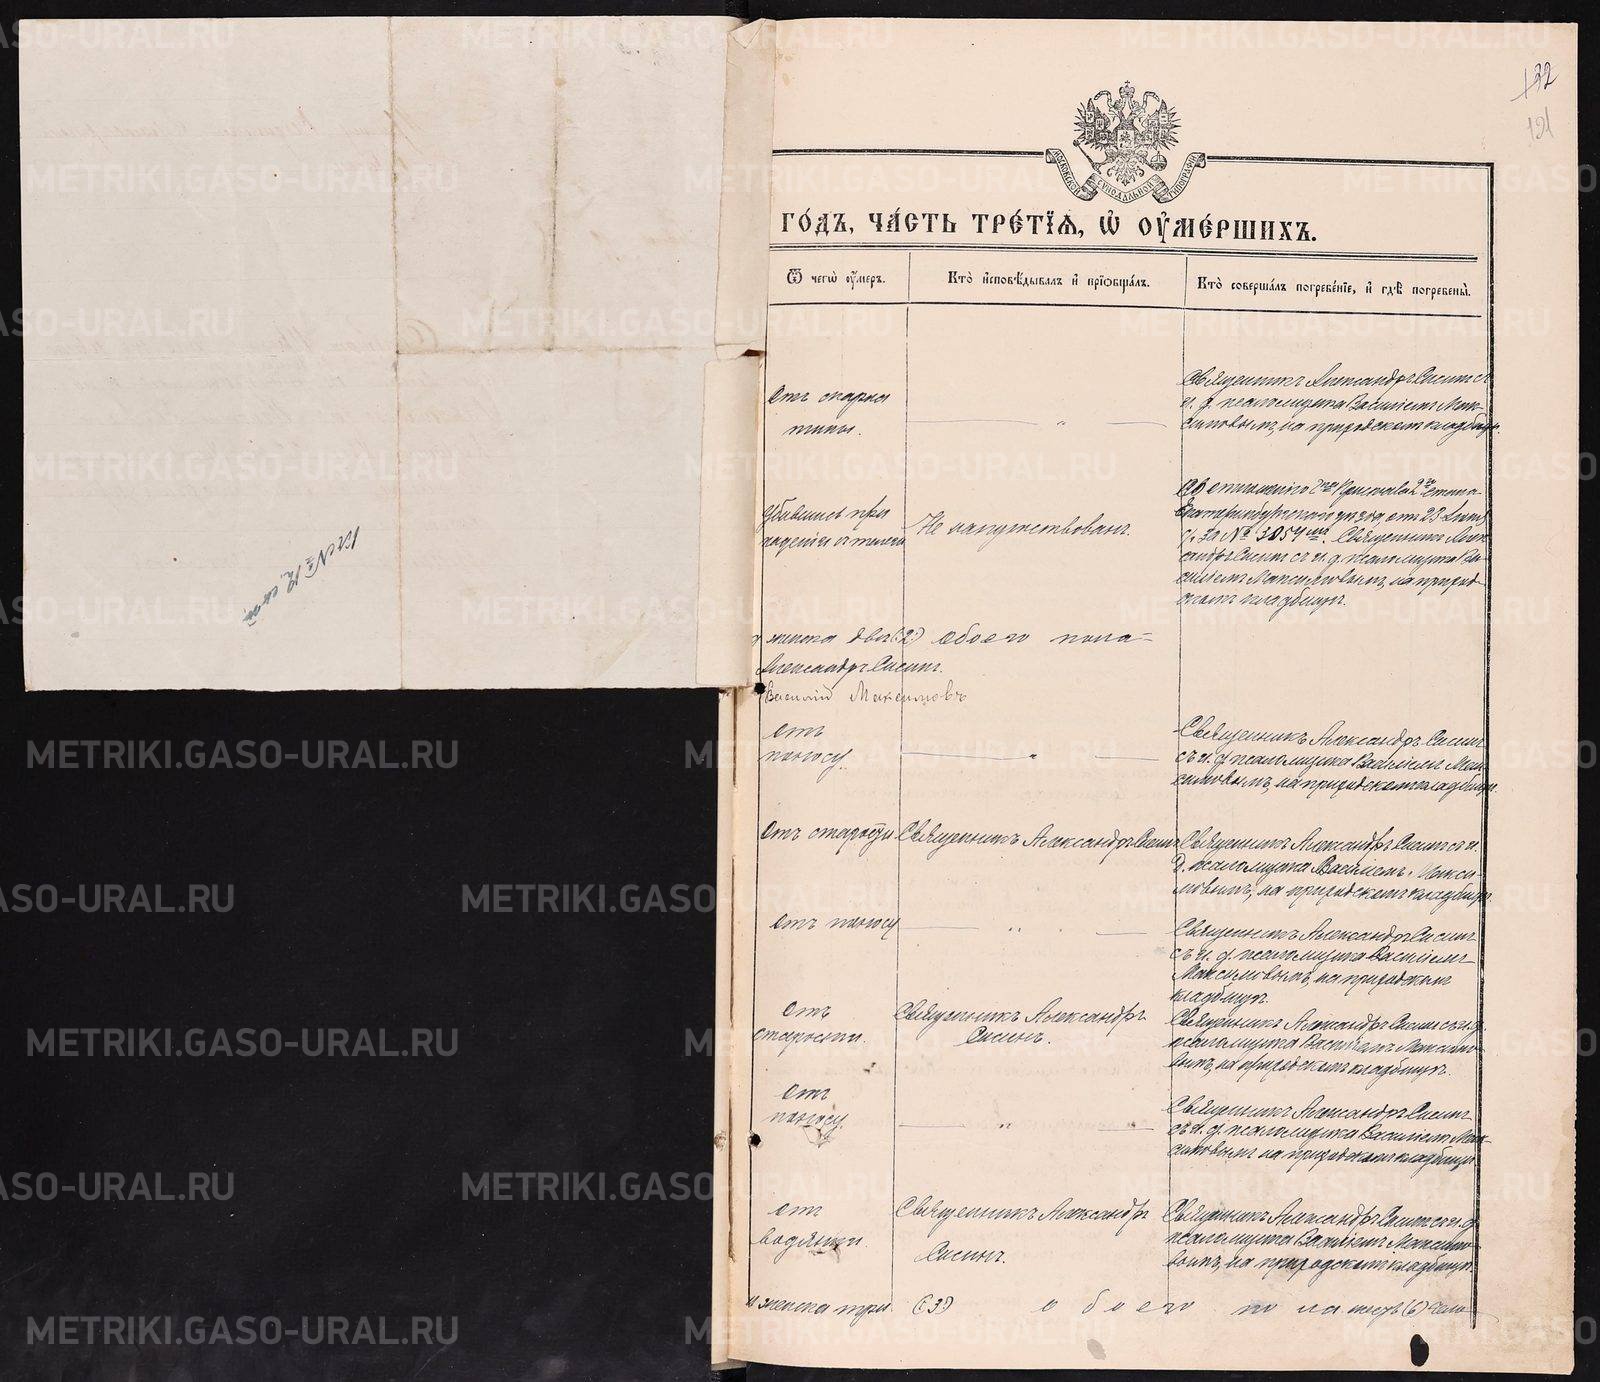 132
121
МОСКОВСКОЙ СѴНОДАЛЬНОЙ ТИПОГРАФІИ
ГО́ДЪ, ЧА́СТЬ ТРЕ́ТЇѦ, Ѽ ОУ҆МЕ́РШИХЪ.
Ѿ чегѡ̀ оу҆́меръ.
Кто̀ и҆сповѣ́дывалъ и҆ прїѡбща́лъ.
Кто̀ соверша́лъ погребе́нїе, и҆ гдѣ̀ погребены̀.
Отъ скарла
тины.
Священникъ Александръ Сисинъ съ
и. д. псаломщика Василіемъ Мак-
симовымъ, на приходскомъ кладбищѣ.
Убившись при
паденіи съ телеги
Не напутствованъ.
Екатеринбургскаго уѣзда, отъ 23
за № 3054. Священникъ Алек-
сандръ Сисинъ съ и. д. псаломщика Ва-
силіемъ Максимовымъ, на приход-
скомъ кладбищѣ.
женска два (:2:) Обоего пола
Александръ Сисинъ.
Василій Максимовъ
Отъ
поносу.
Священникъ Александръ Сисинъ
съ и. д. псаломщика Василіемъ Мак-
симовымъ, на приходскомъ кладбищѣ.
Отъ старости
Священникъ Александръ Сисинъ
Священникъ Александръ Сисинъ съ и.
д. псаломщика Василіемъ Макси-
мовымъ, на приходскомъ кладбищѣ.
Отъ поносу
Священникъ Александръ Сисинъ
съ и. д. псаломщика Василіемъ
Максимовымъ, на приходскомъ
кладбищѣ.
Отъ
старости.
Священникъ Александръ
Сисинъ.
Священникъ Александръ Сисинъ съ и. д.
псаломщика Василіемъ Максимо-
вымъ, на приходскомъ кладбищѣ.
Отъ
поносу.
Священникъ Александръ Сисинъ
съ и. д. псаломщика Василіемъ Мак-
симовымъ на приходскомъ кладбищѣ.
Отъ
водянки
Священникъ Александръ
Сисинъ.
Священникъ Александръ Сисинъ съ и. д.
псаломщика Василіемъ Максимо-
вымъ, на приходскомъ кладбищѣ.
и женска три (:3:) обоего пола шесть (6) чело-
METRIKI.GASO-URAL.RU